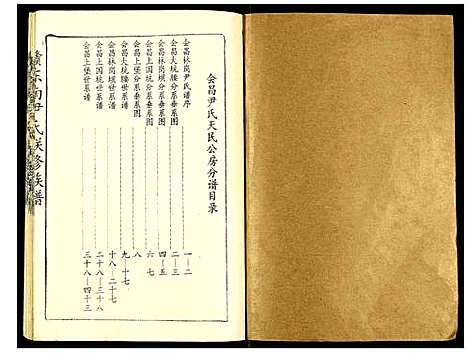 会昌尹氏天民公房分谱目录
会昌林岗尹氏谱序 一－二
会昌大坑腰分系垂系图 二－三
会昌林岗坝分系垂系图 四－五
会昌上国坑分系垂系图 六－七
会昌上堡分系垂系图 八
会昌大坑腰世系谱 九－十七
会昌林岗坝世系谱 十八－二十七
会昌上国坑世系谱 二十八－三十八
会昌上堡世系谱 三十八－四十三
氏联修族谱